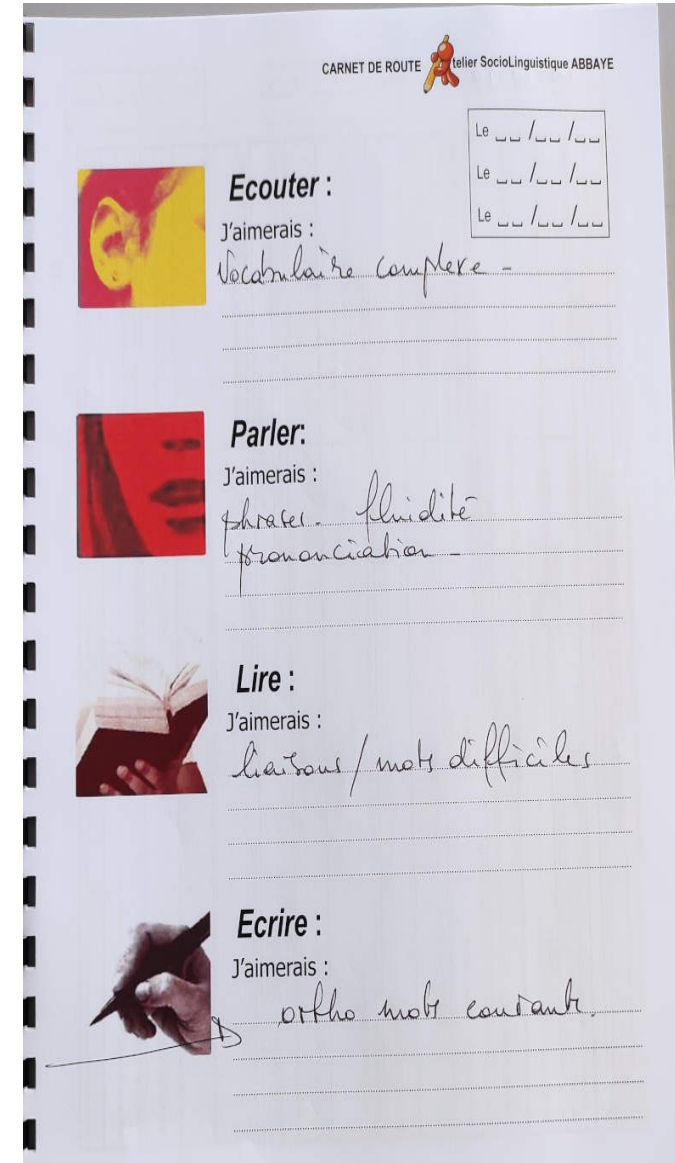 CARNET DE ROUTE Atelier SocioLinguistique ABBAYE
Le __/__/__
Le __/__/__
Le __/__/__
Ecouter :
J'aimerais :
Vocabulaire complexe -
Parler:
J'aimerais :
phrases - fluidité
prononciation -
Lire :
J'aimerais :
liaisons / mots difficiles
Ecrire :
J'aimerais :
ortho mots courants.